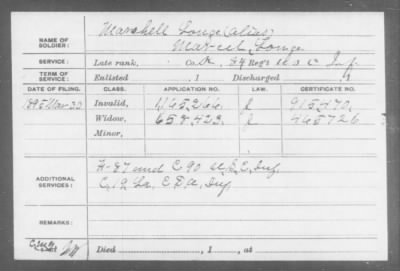 NAME OF SOLDIER: Marshell Longe (alias)
Marcel Longe
SERVICE: Late rank, Co. K, 84 Reg't U.S.C. Inf.
TERM OF SERVICE: Enlisted , 1 Discharged , 1
DATE OF FILING. CLASS. APPLICATION NO. LAW. CERTIFICATE NO.
1895 Mar 30 Invalid, 1,165,266 915,470.
Widow, 658,423. 465726
Minor,
ADDITIONAL SERVICES: H-87 and C. 90 U.S.C. Inf.
C. 19 La. C.D.A. Inf.
REMARKS:
Died , 1 , at